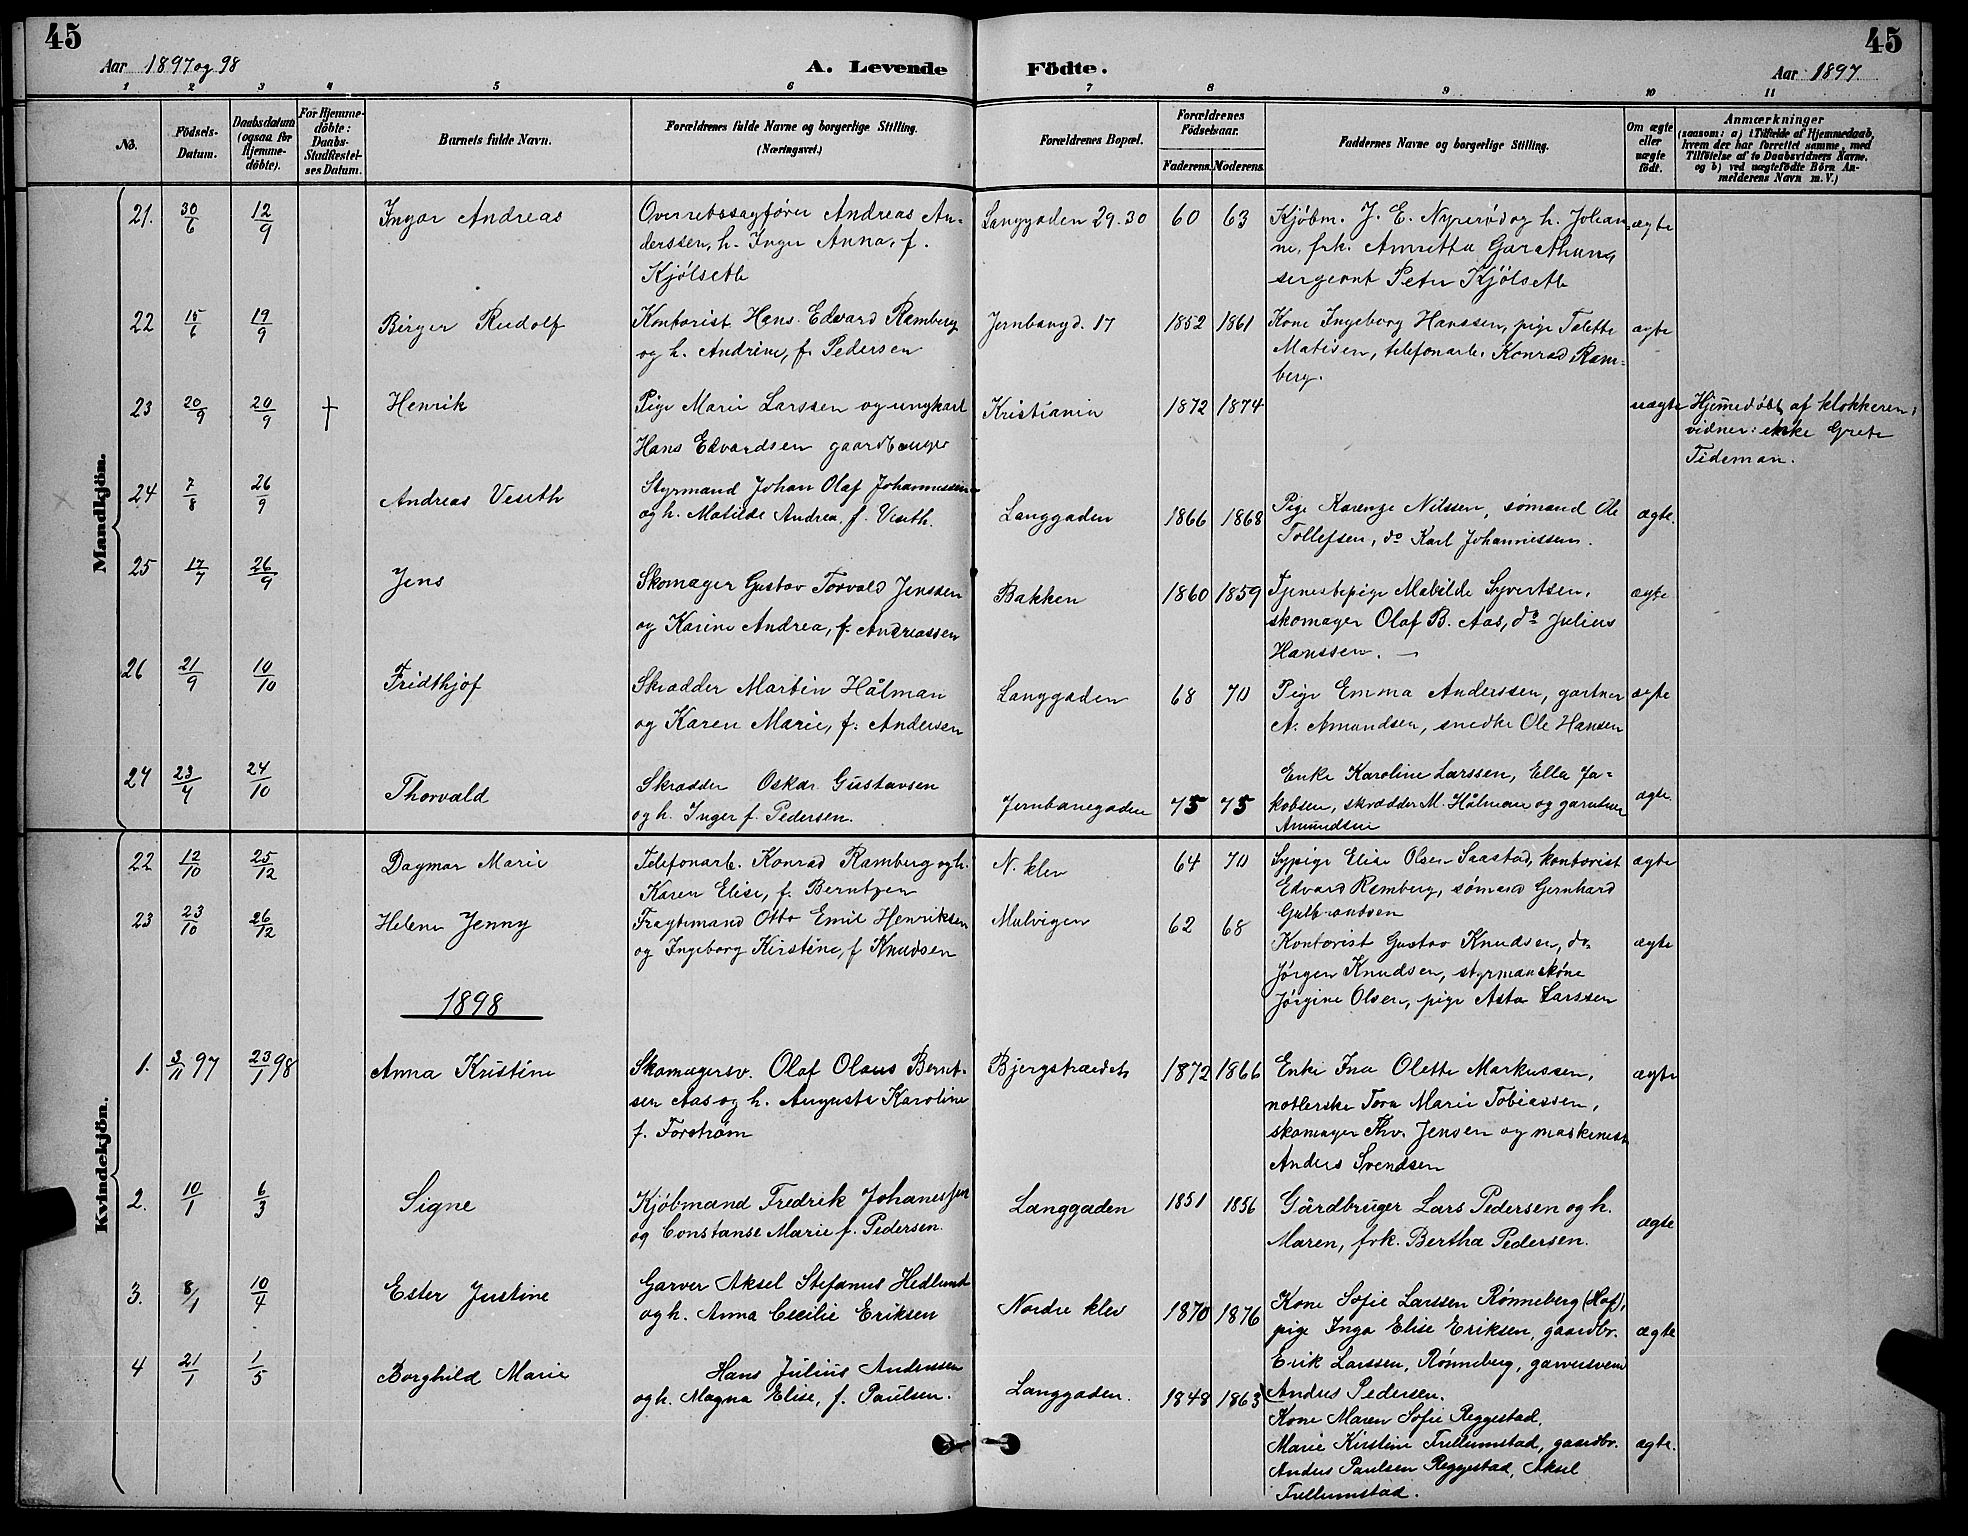 45
45
Aar 1897 og 98
A. Levende
Födte.
Aar 1897
1 2 3 4 5 6 7 8 9 10 11
No.
Födsels-
Datum.
Daabsdatum
(ogsaa for
Hjemme-
döbte).
For Hjemme-
döbte:
Daabs-
Stadfæstel-
ses Datum.
Barnets fulde Navn.
Forældrenes fulde Navne og borgerlige Stilling.
(Næringsvei.)
Forældrenes Bopæl.
Forældrenes
Födselsaar.
Faderens.
Moderens.
Faddernes Navne og borgerlige Stilling.
Om ægte
eller
uægte
födt.
Anmærkninger
(saasom: a) i Tilfælde af Hjemmedaab,
hvem der har forrettet samme, med
Tilföielse af to Daabsvidners Navne.
og b) ved uægtefödte Börn An-
melderens Navn m. V.)
Mandkjön.
21. 30/6 12/9 Ingar Andreas
Overretssagfører Andreas An-
derssen, h. Inger Anna, f.
Kjölseth
Langgaden 29.30 60 63
Kjöbm. J. E. Nyrerød og h. Johan-
ne, frk. Annetta
sergeant Peter Kjölseth
ægte
22 15/6 19/9 Birger Rudolf
Kontorist Hans Edvard Ramberg
og h. Andrine, f. Pedersen
Jernbangd. 17 1852 1861
Kone Ingeborg Hanssen, pige Talette
Matisen, telefonarb. Konrad Ram-
berg.
ægte
23 20/9 20/9 † Henrik
Pige Marie Larssen og ungkarl
Hans Edvardsen gaardbruger
Kristiania 1872 1874
uægte
Hjemmedöbt af klokkeren;
vidner: enke Grete
Tideman.
24 7/8 26/9 Andreas Veseth
Styrmand Johan Olaf Johannessen
og h. Matilde Andrea, f. Veseth.
Langgaden 1866 1868
Pige Karenze Nilssen, sømand Ole
Tollefsen, do Karl Johannessen.
ægte.
25 17/7 26/9 Jens
Skomager Gustav Torvald Jenssen
og Karine Andrea, f. Andreassen
Bakken 1860 1859
Tjenestepige Mathilde Syvertsen,
skomager Olaf B. Aas, do Julius
Hanssen.
ægte
26 21/9 10/10 Fridthjof
Skrædder Martin Hålman
og Karen Marie, f. Andersen
Langgaden 68 70
Pige Emma Anderssen, gartner
A. Amundsen, snedke Ole Hansen
ægte
27 23/4 24/10 Thorvald
Skrædder Oskar Gustavsen
og h. Inger f. Pedersen.
Jernbanegaden 75 75
Enke Karoline Larssen, Ella Ja-
kobsen, skrædder M. Hålman og gartner
Amundsen
ægte.
Kvindekjön.
22 12/10 25/12 Dagmar Marie
Telefonarb. Konrad Ramberg og h.
Karen Elise, f. Berntzen
N. klev 64 70
Sypige Elise Olsen Saastad, kontorist
Edvard Ramberg, sømand Gernhard
Gulbrandsen
ægte
23 23/10 26/12 Helene Jenny
Fragtemand Otto Emil Henriksen
og Ingeborg Kirstine, f. Knudsen
Mulvigen 62 68
Kontorist Gustav Knudsen, do
Jørgen Knudsen, styrmanskone
Jørgine Olsen, pige Asta Larssen
ægte
1898
1. 3/11 97 23/1 98 Anna Kristine
Skomagersv. Olaf Olaus Bernt-
sen Aas og h. Augusta Karoline
f. Forström
Bjergstrædet 1872 1866
Enke Ina Olette Markussen,
Tora Marie Tobiassen,
skomager Thv. Jensen og maskinist
Anders Svendsen
ægte
2. 10/1 6/3 Signe
Kjöbmand Fredrik Johanessen
og Constanse Marie f. Pedersen.
Langgaden 1851 1856
Gårdbruger Lars Pedersen og h.
Maren, frk. Bertha Pedersen.
ægte
3. 8/1 10/4 Ester Justine
Garver Aksel Stefanus Hedlund
og h. Anna Cecilie Eriksen
Nordre klev 1870 1876
Kone Sofie Larssen Rønneberg (Hof),
pige Inga Elise Eriksen, gaardbr.
Erik Larssen, Rønneberg, garversvend
Anders Pedersen.
ægte
4 21/1 1/5 Borghild Marie
Hans Julius Anderssen
og h. Magna Elise, f. Paulsen.
Langgaden. 1848 1863
Kone Maren Sofie Reggestad,
Marie Kirstine Trellumstad, gaardbr.
Anders Paulsen Reggestad, Aksel
Trellumstad.
ægte.